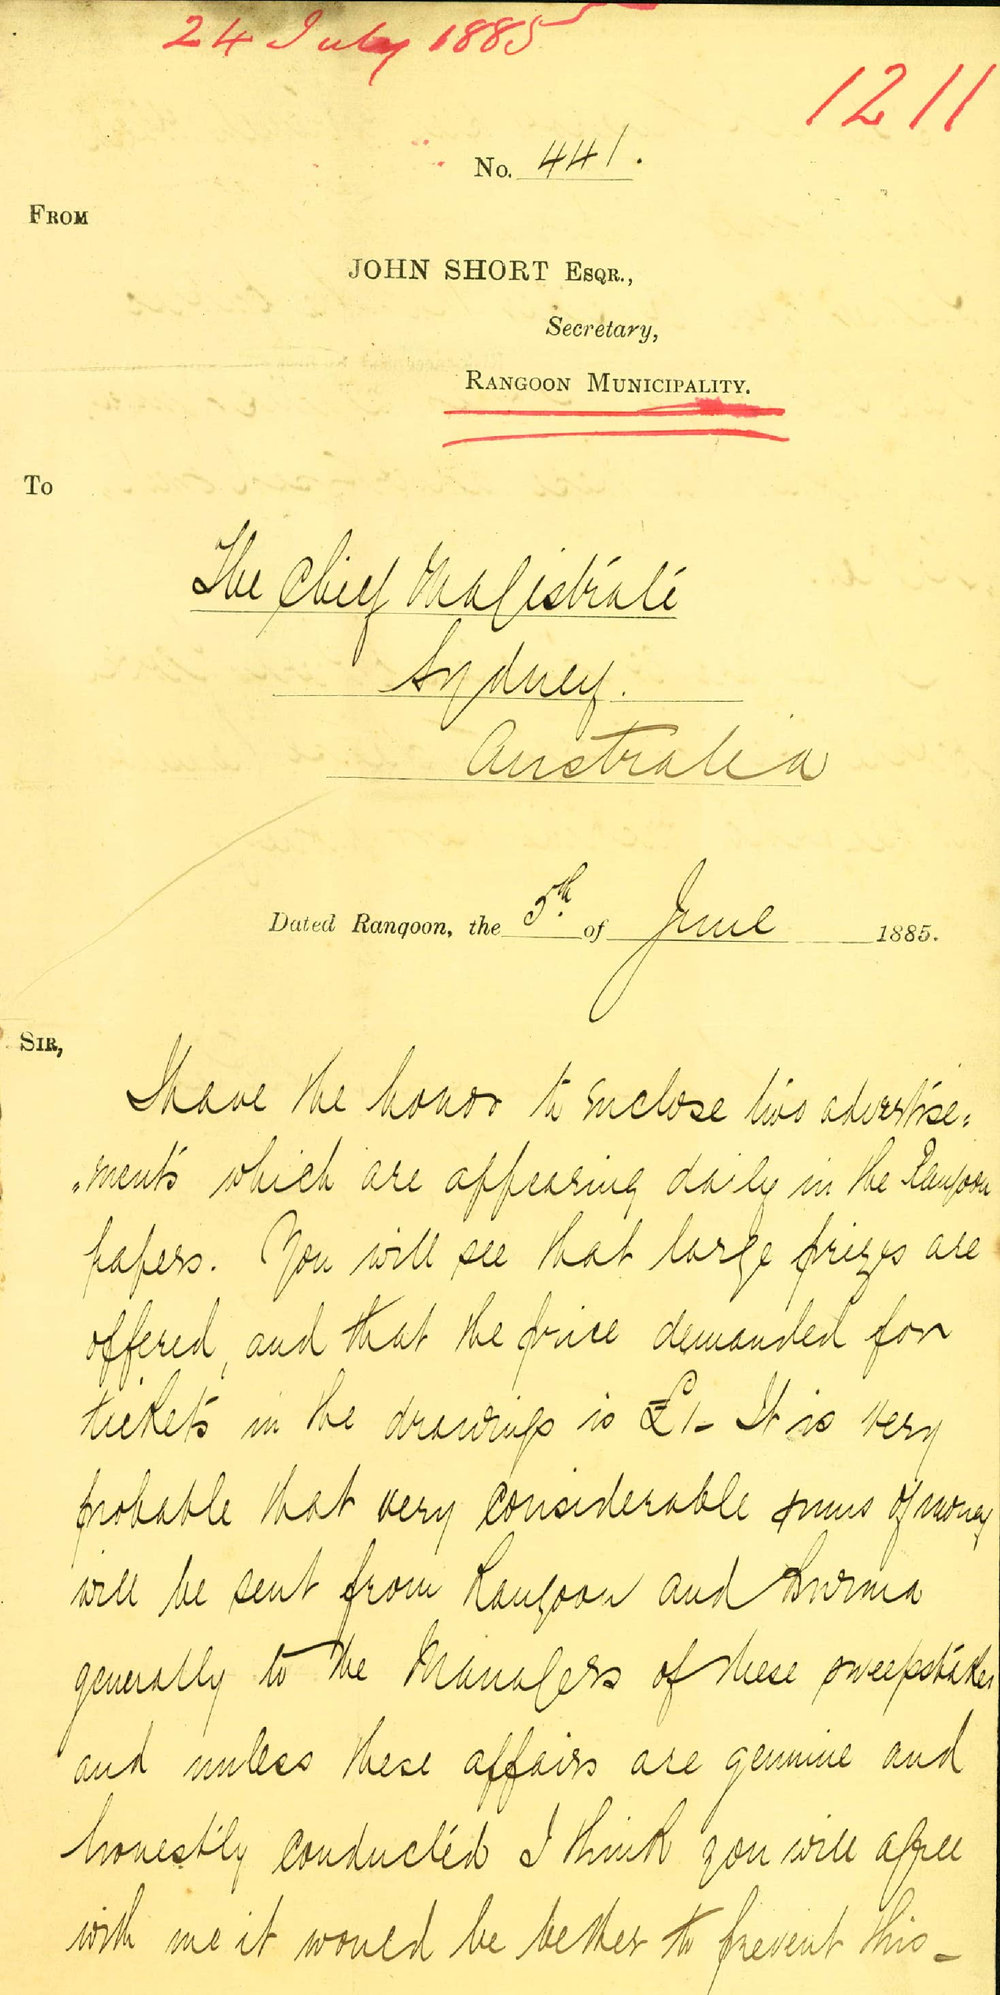 24 July 1885
1211
No. 441.
FROM
JOHN SHORT ESQR.,
Secretary,
RANGOON MUNICIPALITY.
To
The Chief Magistrate
Sydney.
Australia
Dated Rangoon, the 5th. of June 1885.
SIR,
I have the honor to enclose two advertise=
"ments which are appearing daily in the Rangoon
papers. You will see that large prizes are
offered, and that the price demanded for
tickets in the drawings is £1- It is very
probable that very considerable sums of money
will be sent from Rangoon and Burma
generally to the Managers of these sweepstakes
and unless these affairs are genuine and
honestly conducted I think you will agree
with me it would be better to prevent this-